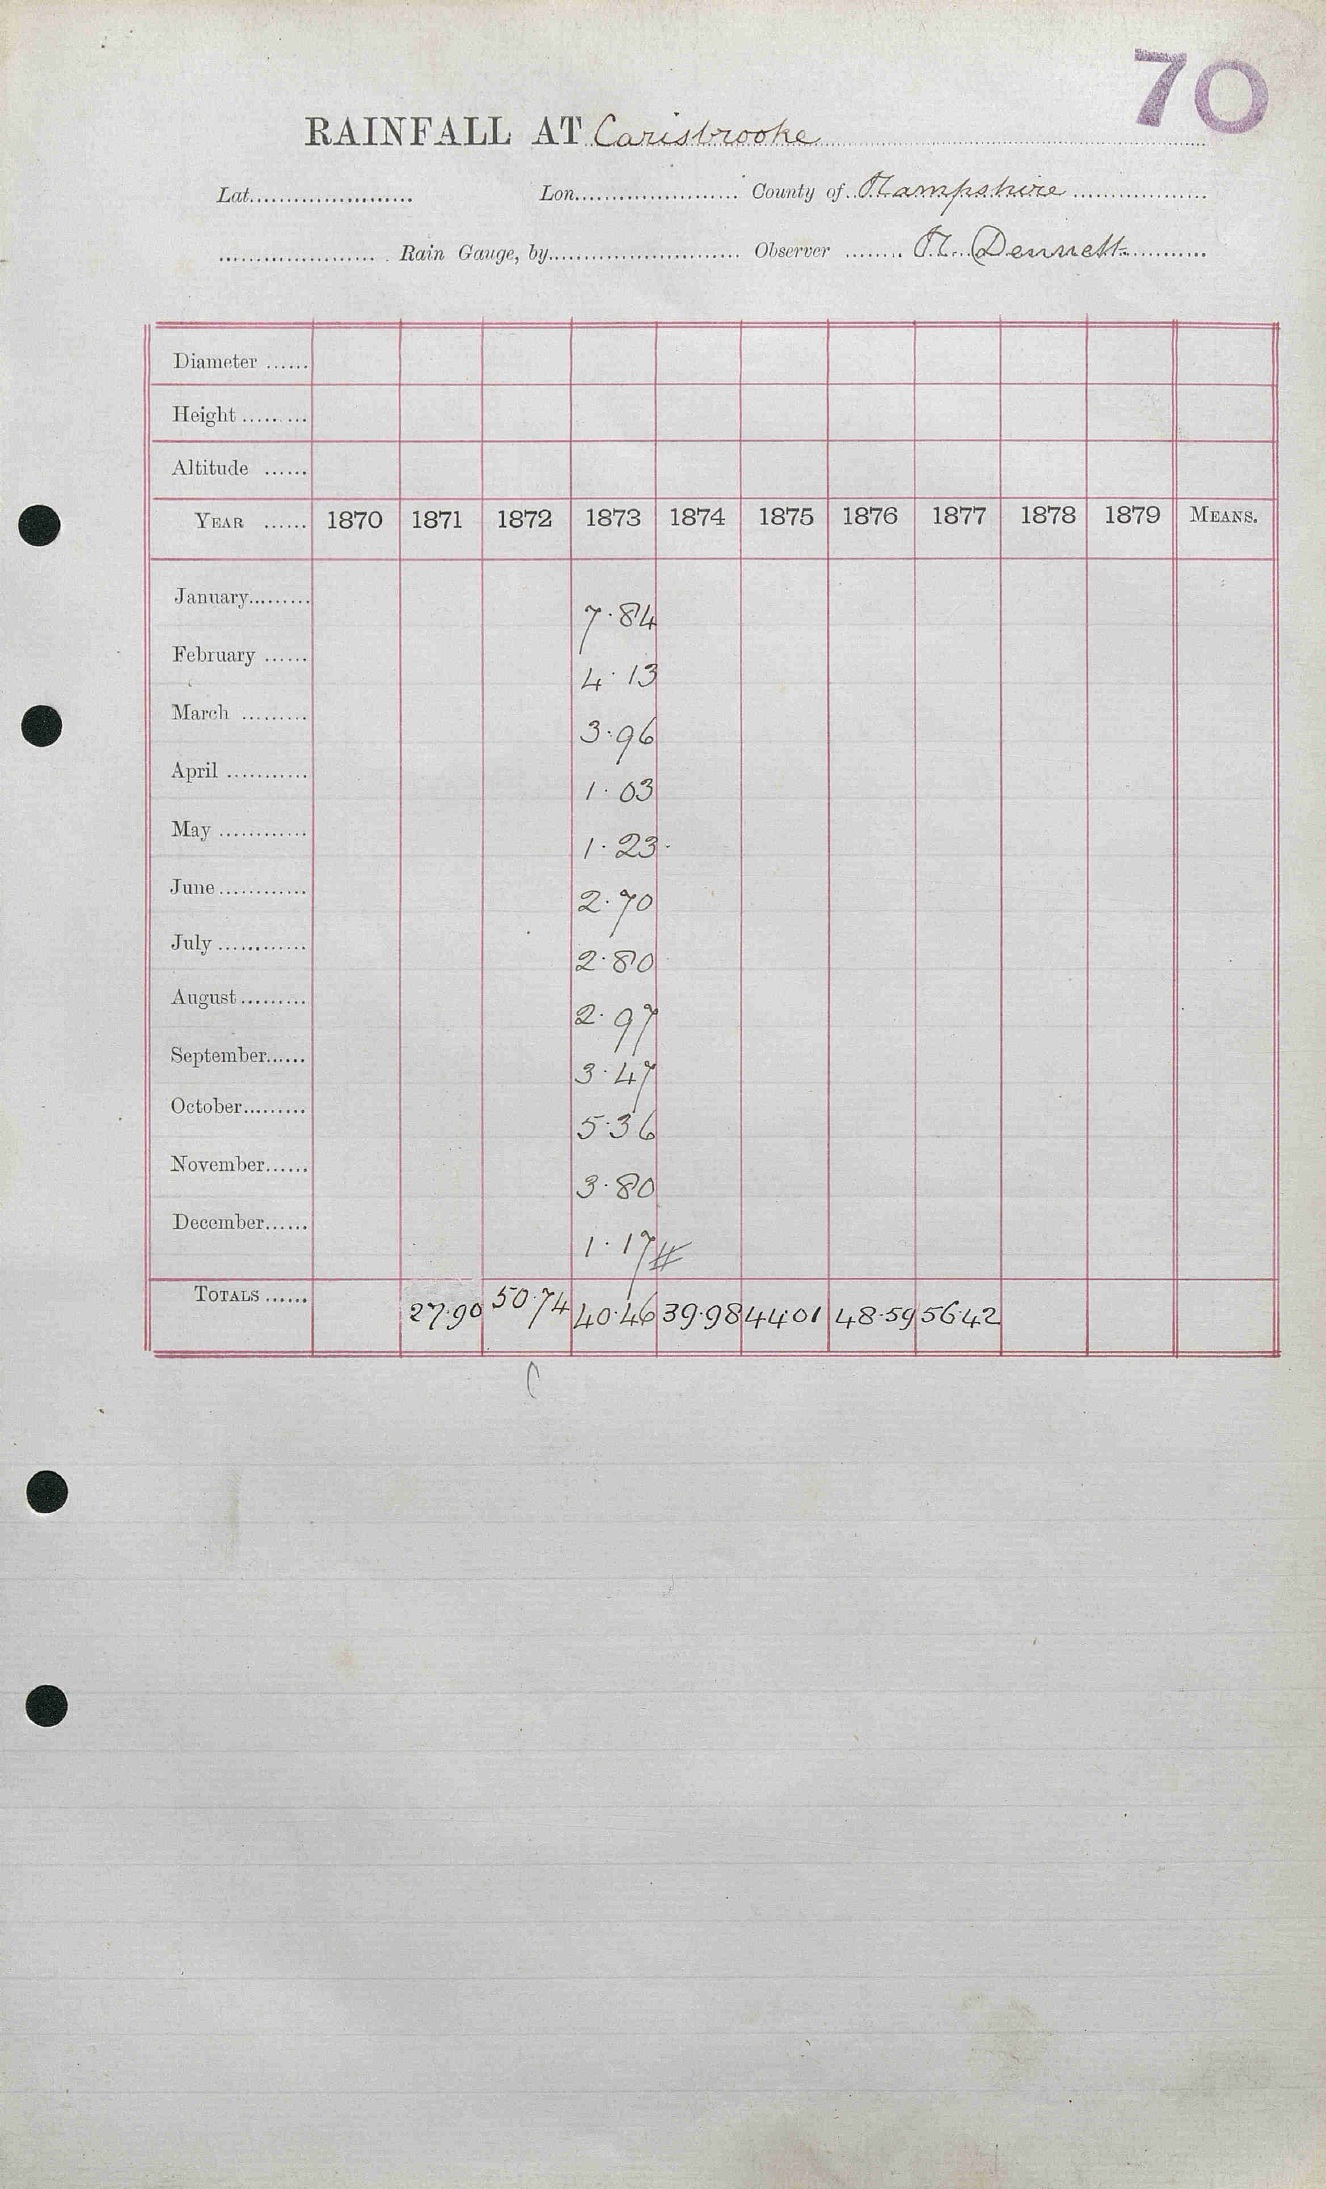 70
RAINFALL AT Carisbrooke
Lat. Lon. County of Hampshire
Rain Gauge, by Observer H. Dennett
Diameter
Height
Altitude
YEAR 1870 1871 1872 1873 1874 1875 1876 1877 1878 1879 MEANS.
January 7.84
February 4.13
March 3.96
April 1.03
May 1.23
June 2.70
July 2.80
August 2.97
September 3.47
October 5.36
November 3.80
December 1.17
TOTALS 27.90 50.74 40.46 39.98 44.01 48.59 56.42